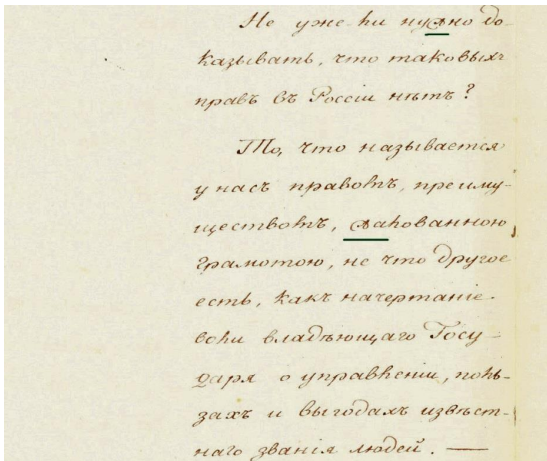 Не уже-ли нужно до-
казывать, что таковыхъ
правъ въ Россіи нѣтъ?
То, что называется
у насъ правомъ, преиму-
ществомъ, жалованною
грамотою, не что другое
есть, какъ начертаніе
воли владѣющаго Госу-
даря о управленіи, поль-
захъ и выгодахъ извѣст-
наго званія людей. —